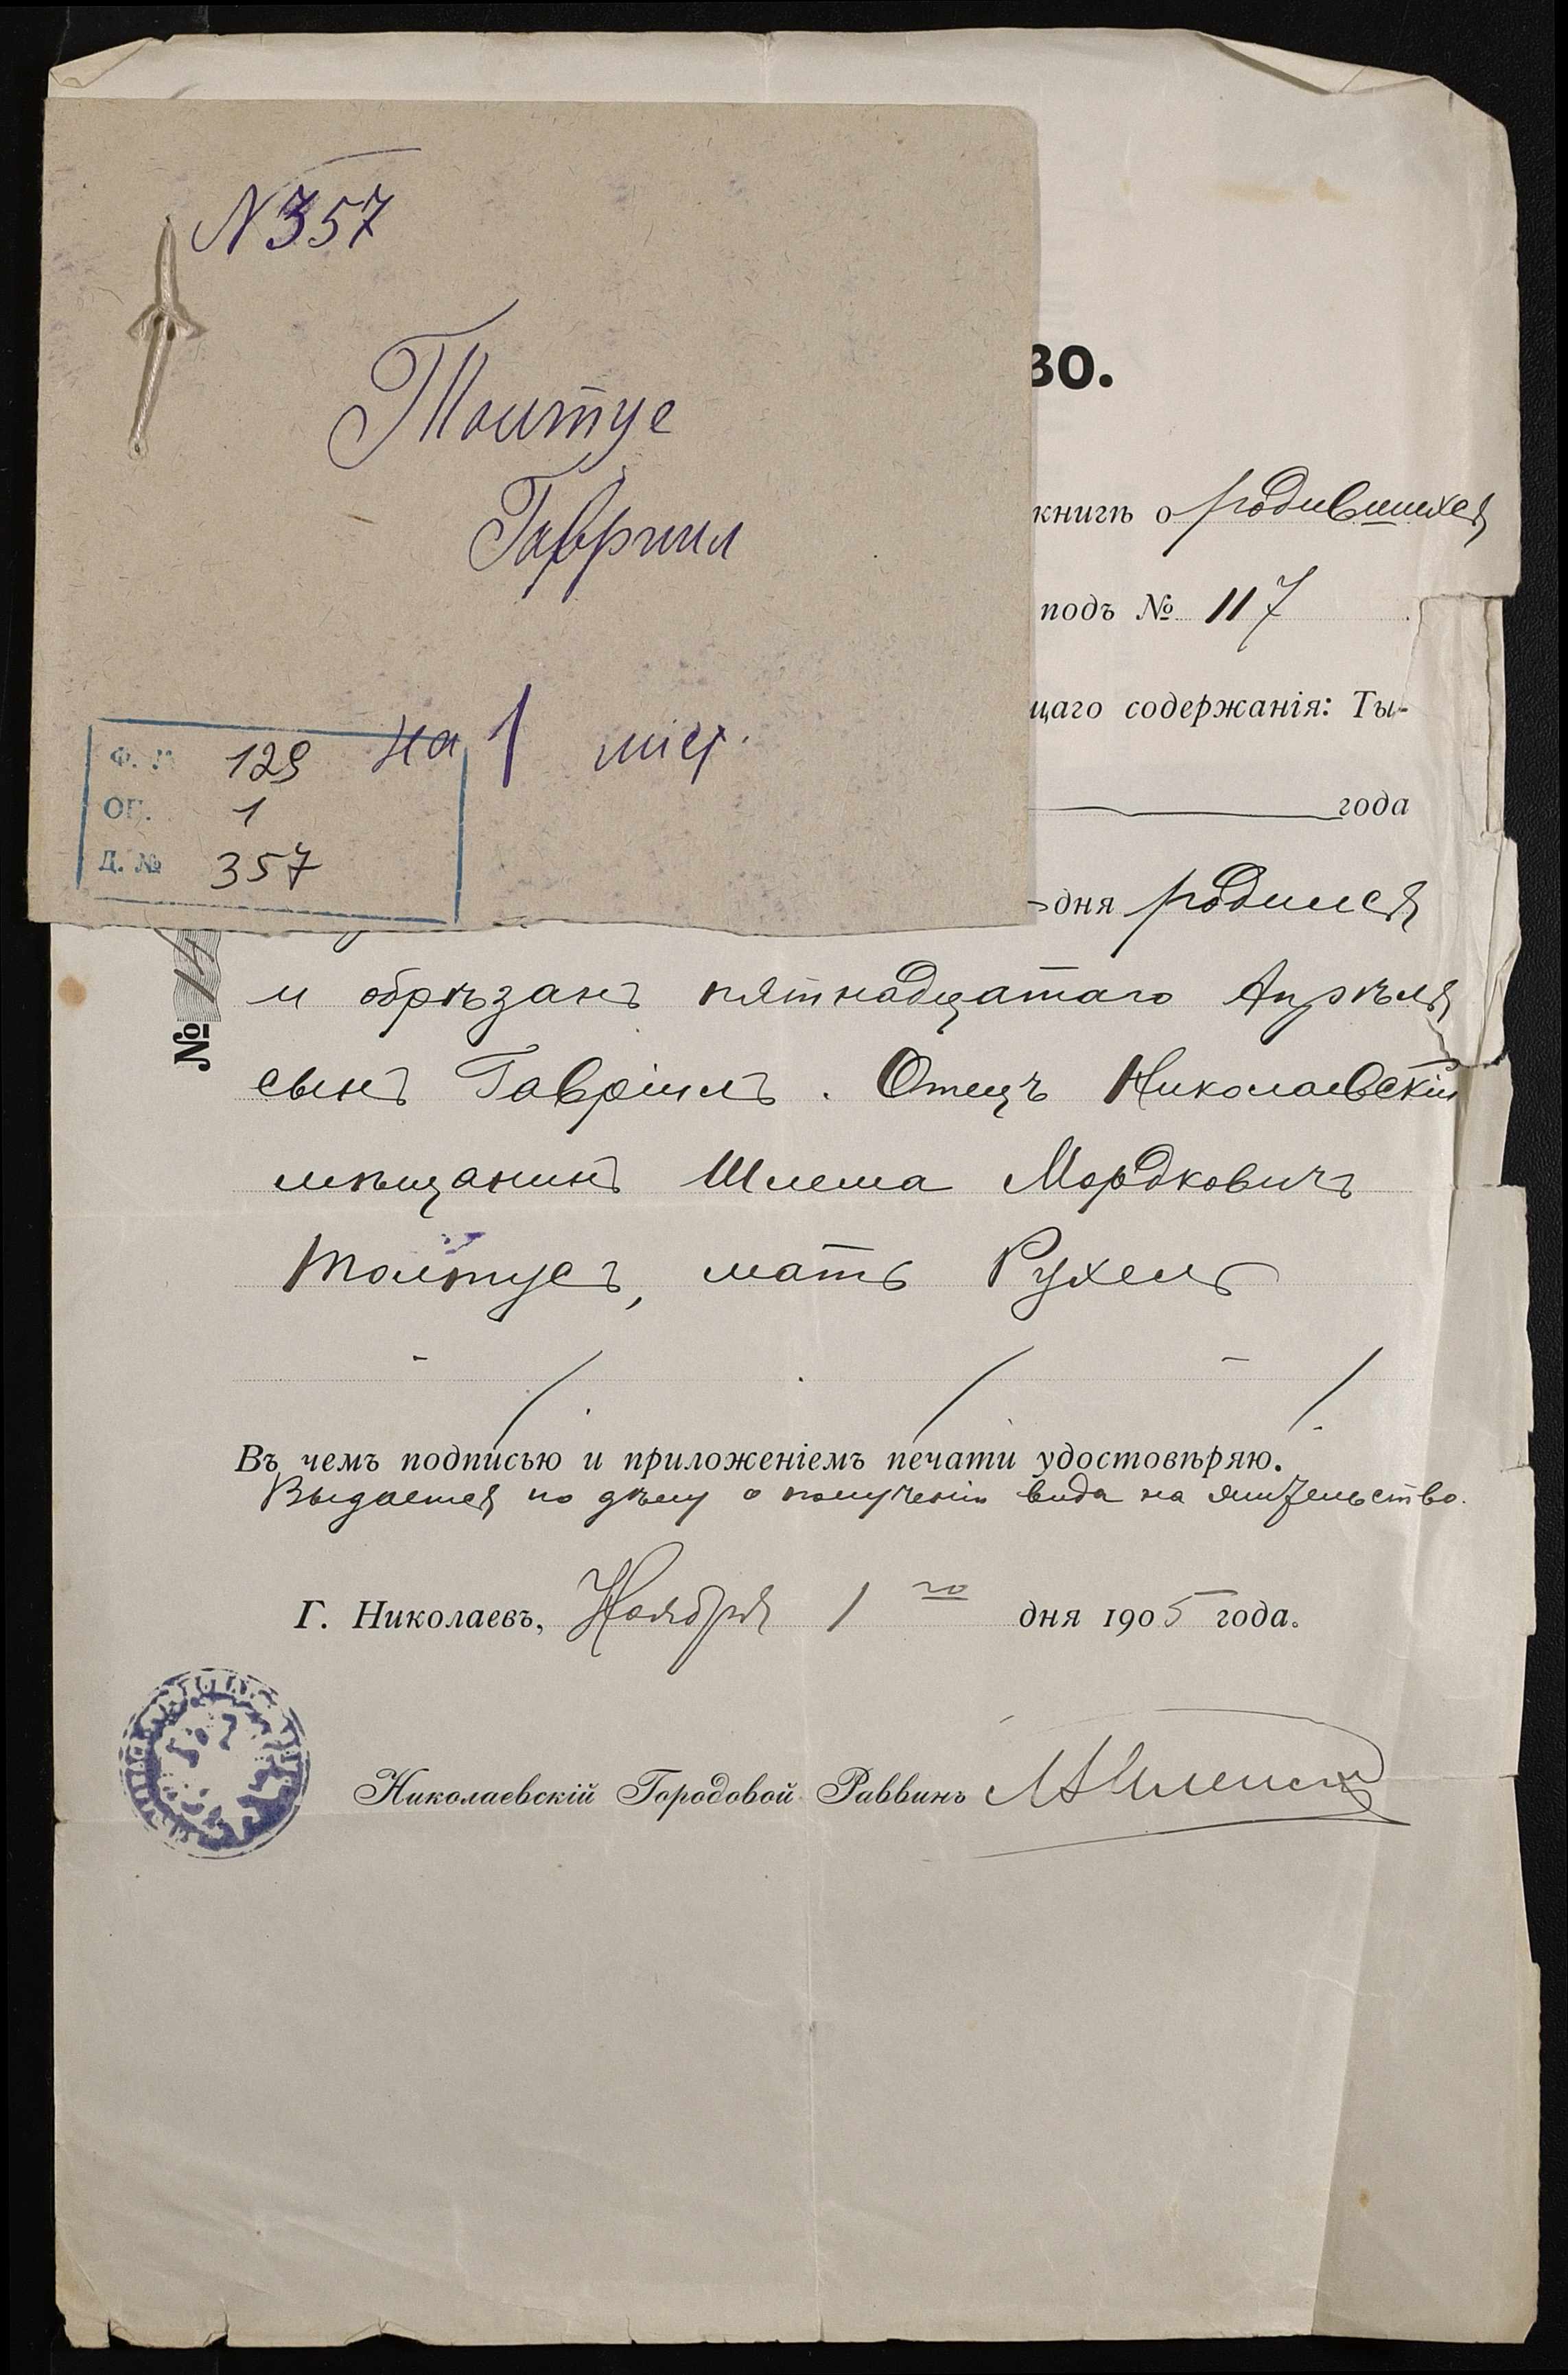 N 357
Толтус
Гавриил
на 1 лист.
Ф. № 129
ОП. 1
Д. № 357
во.
книгѣ о родившихся
подъ № 117
щаго содержанія: Ты-
года
дня родился
№ 14
и обрѣзанъ пятнадцатаго Апрѣля
сынъ Гавріилъ. Отецъ Николаевскій
мѣщанинъ Шлема Мордковичъ
Толтусъ, мать Рухель
Въ чемъ подписью и приложеніемъ печати удостовѣряю.
Выдается по дѣлу о полученіи вида на жительство.
Г. Николаевъ, Ноября 1 го дня 1905 года.
Николаевскій Городовой Раввинъ